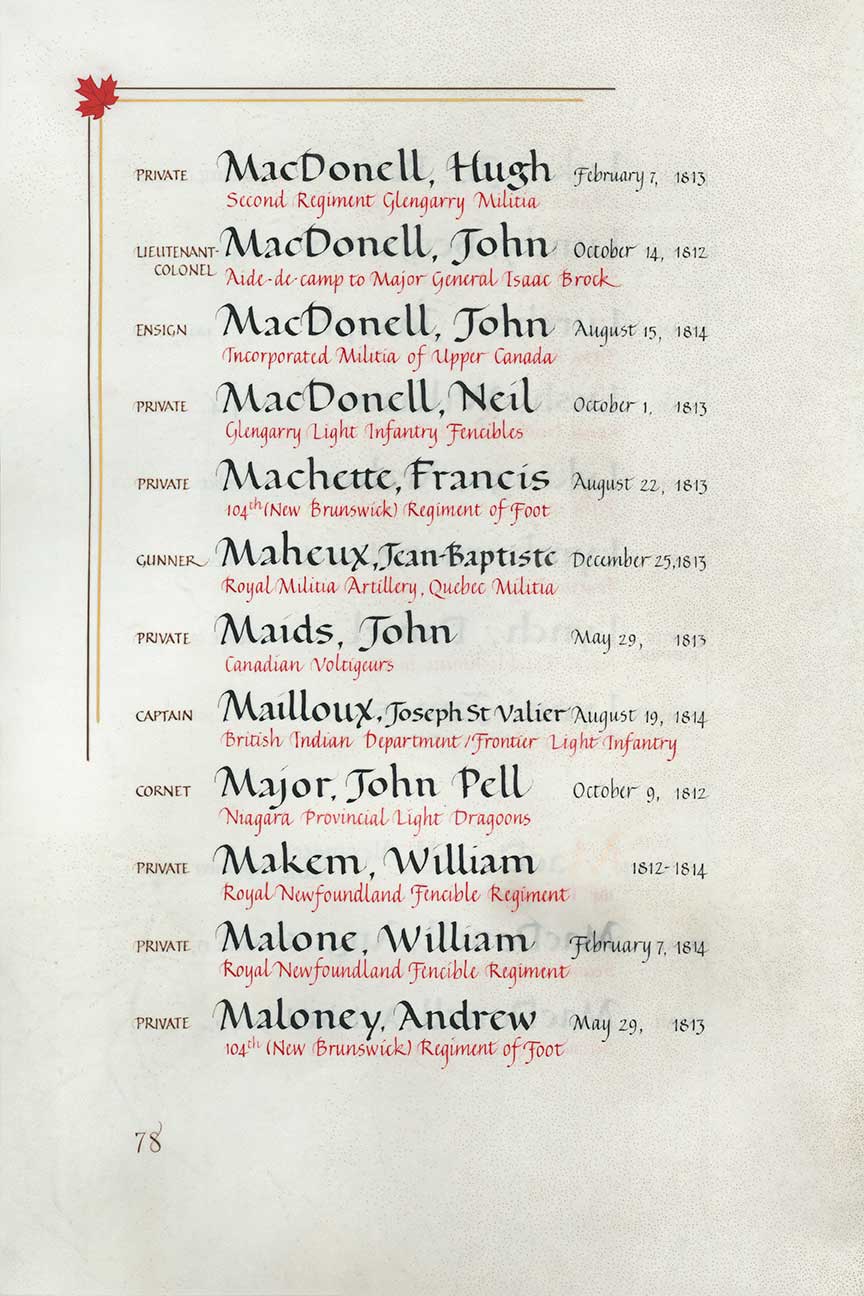 PRIVATE MacDonell, Hugh February 7, 1813
Second Regiment Glengarry Militia
LIEUTENANT- MacDonell, John October 14, 1812
COLONEL Aide-de-camp to Major General Isaac Brock
ENSIGN MacDonell, John August 15, 1814
Incorporated Militia of Upper Canada
PRIVATE MacDonell, Neil October 1, 1813
Glengarry Light Infantry Fencibles
PRIVATE Machette, Francis August 22, 1813
104th (New Brunswick) Regiment of Foot
GUNNER Maheux, Jean-Baptiste December 25, 1813
Royal Militia Artillery, Quebec Militia
PRIVATE Maids, John May 29, 1813
Canadian Voltigeurs
CAPTAIN Mailloux, Joseph St Valier August 19, 1814
British Indian Department/Frontier Light Infantry
CORNET Major, John Pell October 9, 1812
Niagara Provincial Light Dragoons
PRIVATE Makem, William 1812-1814
Royal Newfoundland Fencible Regiment
PRIVATE Malone, William February 7, 1814
Royal Newfoundland Fencible Regiment
PRIVATE Maloney, Andrew May 29, 1813
104th (New Brunswick) Regiment of Foot
78